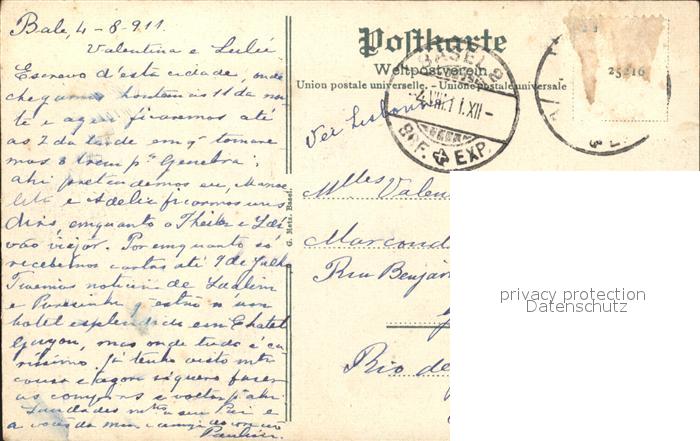 Bale, 4-8-911.
Valentina e Lulú
Escrevo d'esta cidade, onde
chegamos hontem ás 11 da noi-
te e aqui ficaremos até
as 2 da tarde em q. tomare-
mos o trem pª Genebra;
ahi pretendemos eu,
e Adelia ficarmos uns
dias, emquanto o Theitor e
vão viajar. Por emquanto só
recebemos cartas até 9 de Julho
Tivemos noticia de
e estão n'um
hotel esplendido em Chatel
Guyon, mas onde tudo é ca-
rissimo. Já tenho visto mta
cousa e agora só quero fazer
as compras e voltar pª ahi.
Saudades a seu Pai e
a vocês da
Postkarte
Weltpostverein.
Union postale universelle. - Unione postale universale
BASEL 2
4.VIII.11.XII-
BRF. EXP.
25216
Via Lisbonne
G. Metz, Basel.
Mlles Valen
Marcond
Rua Benjam
Rio de
privacy protection
Datenschutz